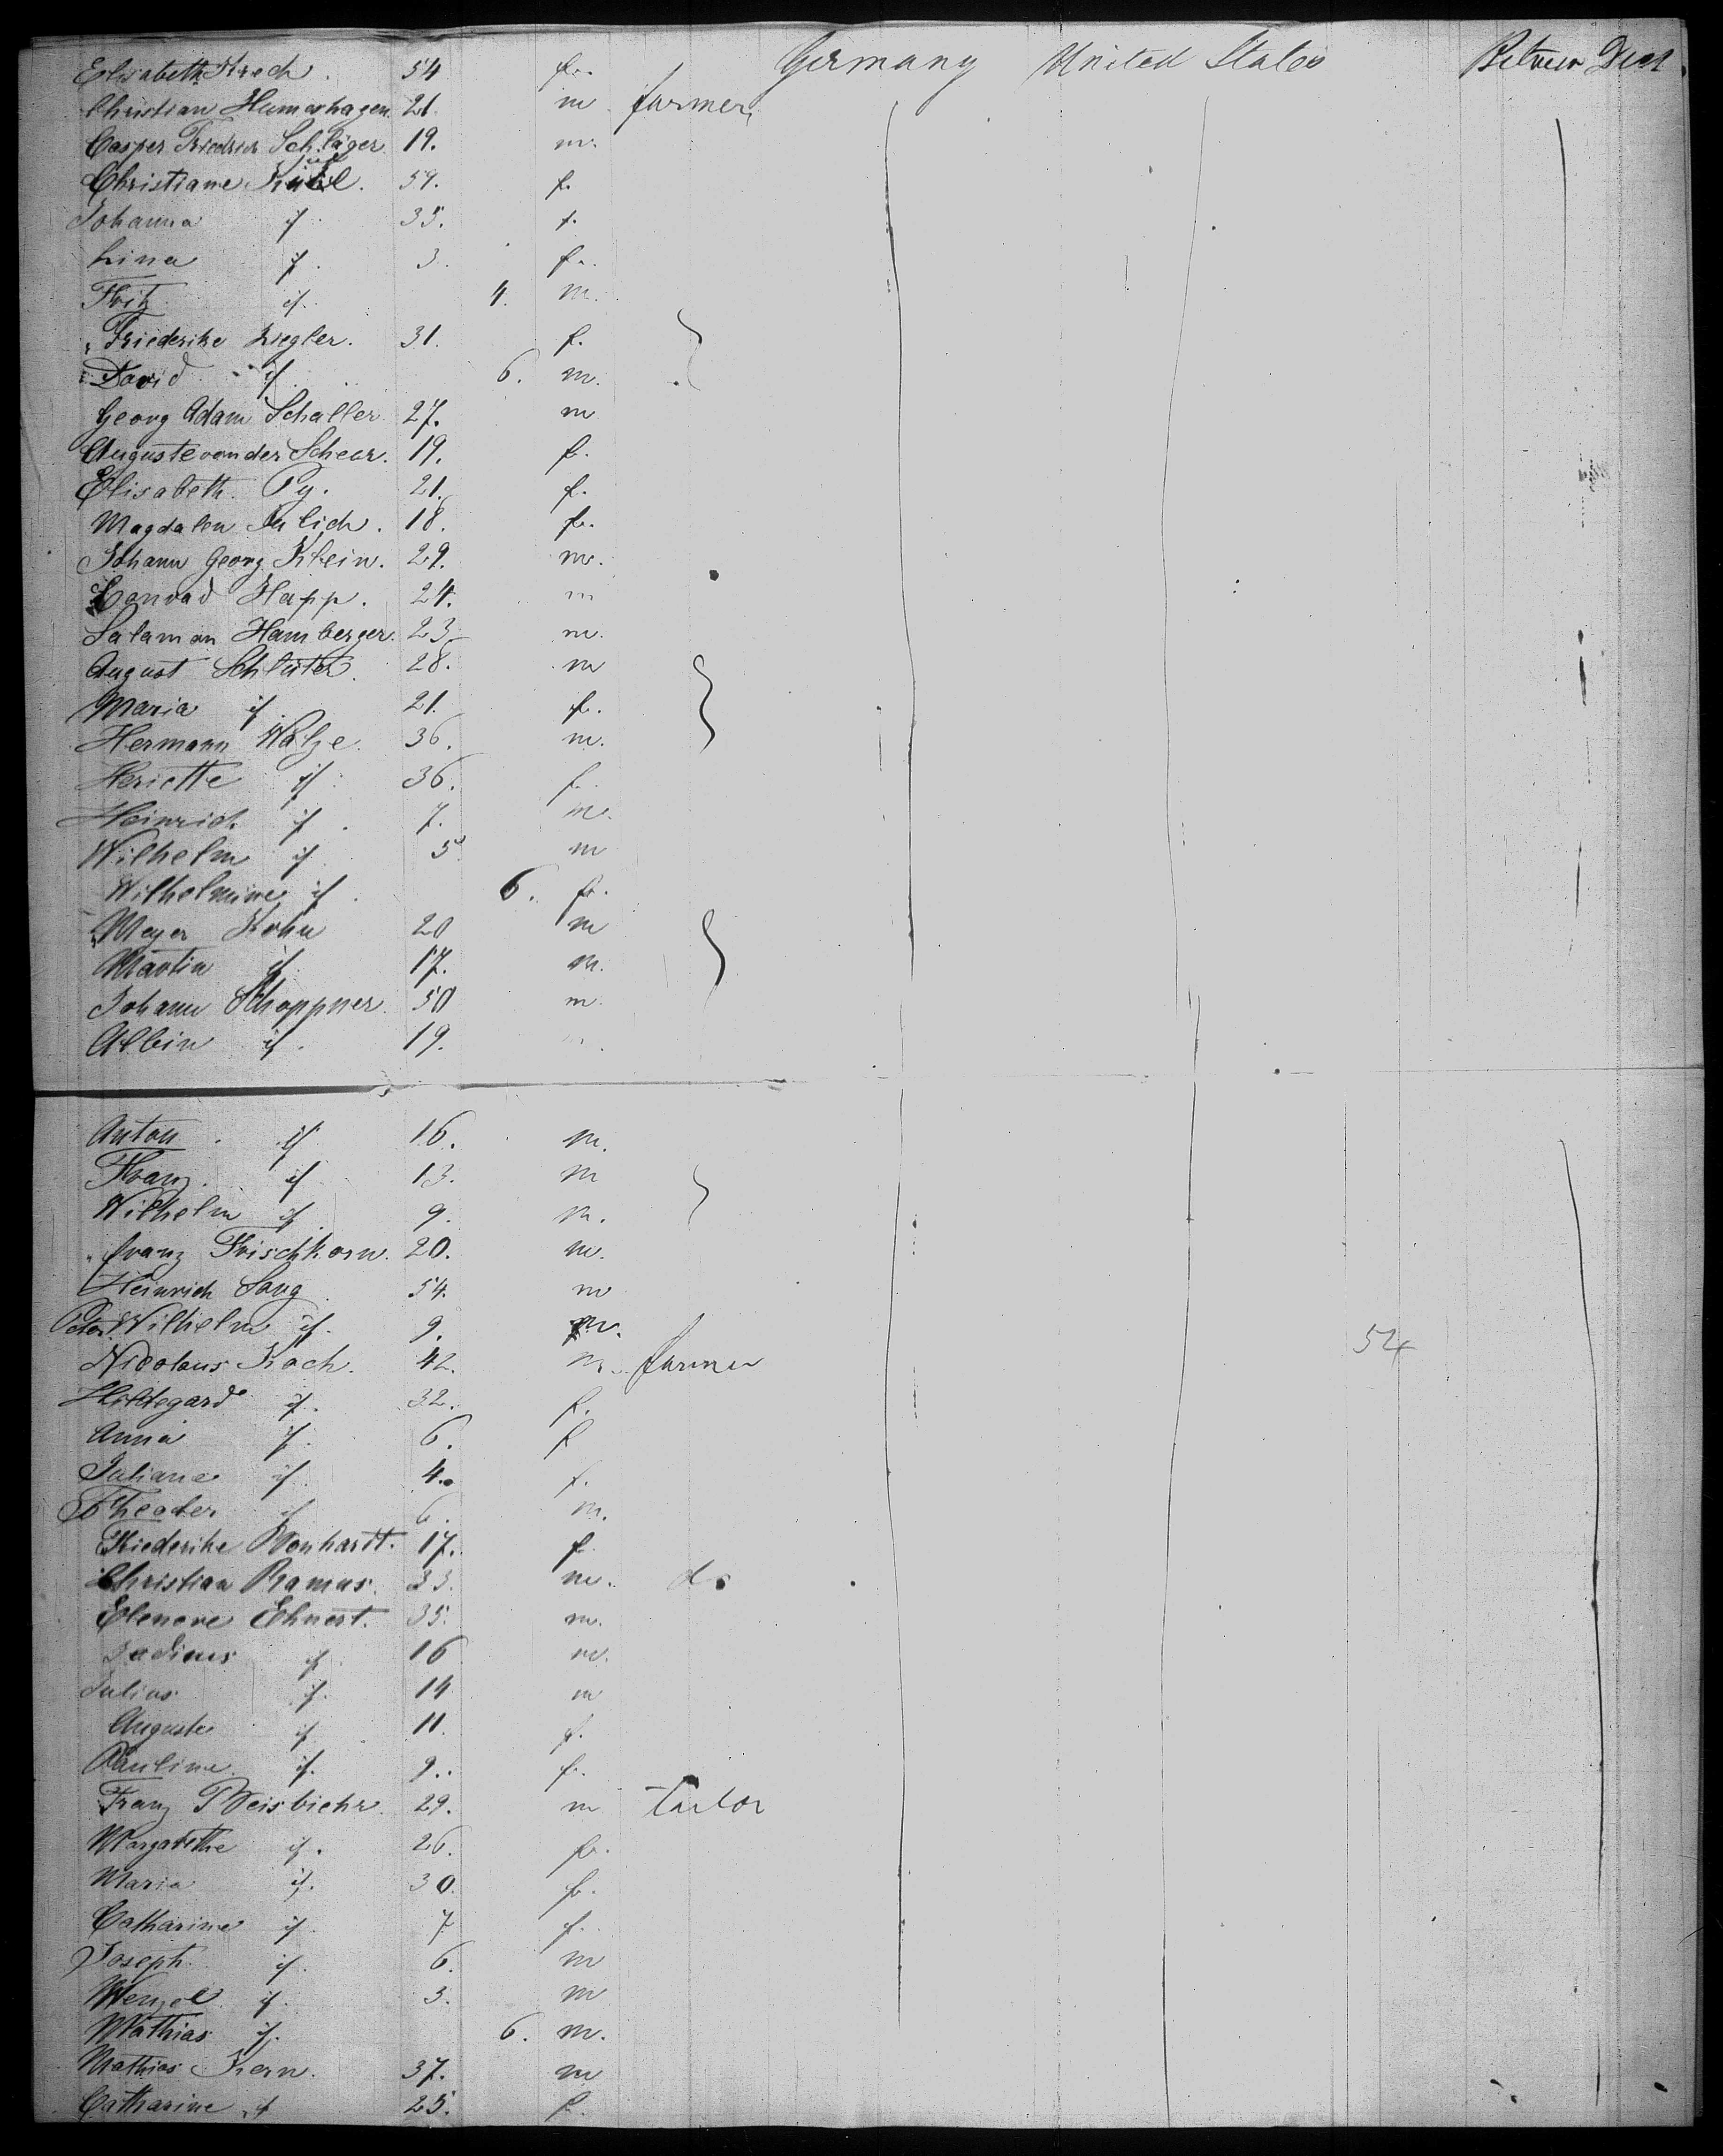 Elisabeth Krech. 54 f. Germany United States Between Deck
Christian Humershagen. 21. m farmer
Casper Friedrich Schläger. 19. m.
Christiane 59. f.
Johanna if 35. f.
Lina if. 3. f.
Fritz if. 4. m.
Friederike Ziegler. 31. f.
David if 6. m.
Georg Adam Schaller. 27. m
Auguste von der Schear. 19. f.
Elisabeth Py. 21. f.
Magdalen Julich. 18. f.
Johann Georg Klein. 29. m.
Conrad Happ. 24. m
Salamon Hamberger. 23. m.
August Schlüter. 28. m
Maria if. 21. f.
Hermann Walze. 36. m.
Heriette if 36. f.
Heinrich if. 7. m.
Wilhelm if. 5 m
Wilhelmine if. 6. f.
Meyer Kohn 20 m
Martin if. 17. m.
Johann Schoppner. 50 m.
Albin if. 19.
Anton. if 16. m.
Franz. if 13. m
Wilhelm if. 9. m.
franz Frischkorn. 20. m.
Heinrich Sang. 54. m
Peter Wilhelm if. 9. m.
Nicolaus Koch. 42. m. farmer 54
Hildegard if. 32. f.
Anna if. 6. f
Juliane if. 4. f.
Theoder if 6. m.
Friederike Bonhardt. 17. f
Christian Ramus. 33. m. do
Elenore Ehnert. 35. m.
if 16 m.
Julius if. 14 m
Auguste if 11. f.
Pauline. if. 9. f.
Franz Weisbiehr. 29. m tailor
Margarethe if. 26. f.
Maria if. 30. f.
Catharine if. 7 f.
Joseph. if. 6. m
Wenzel if. 3. m
Mathias if. 6. m.
Mathias Kern. 37. m
Catharine if 25. f.